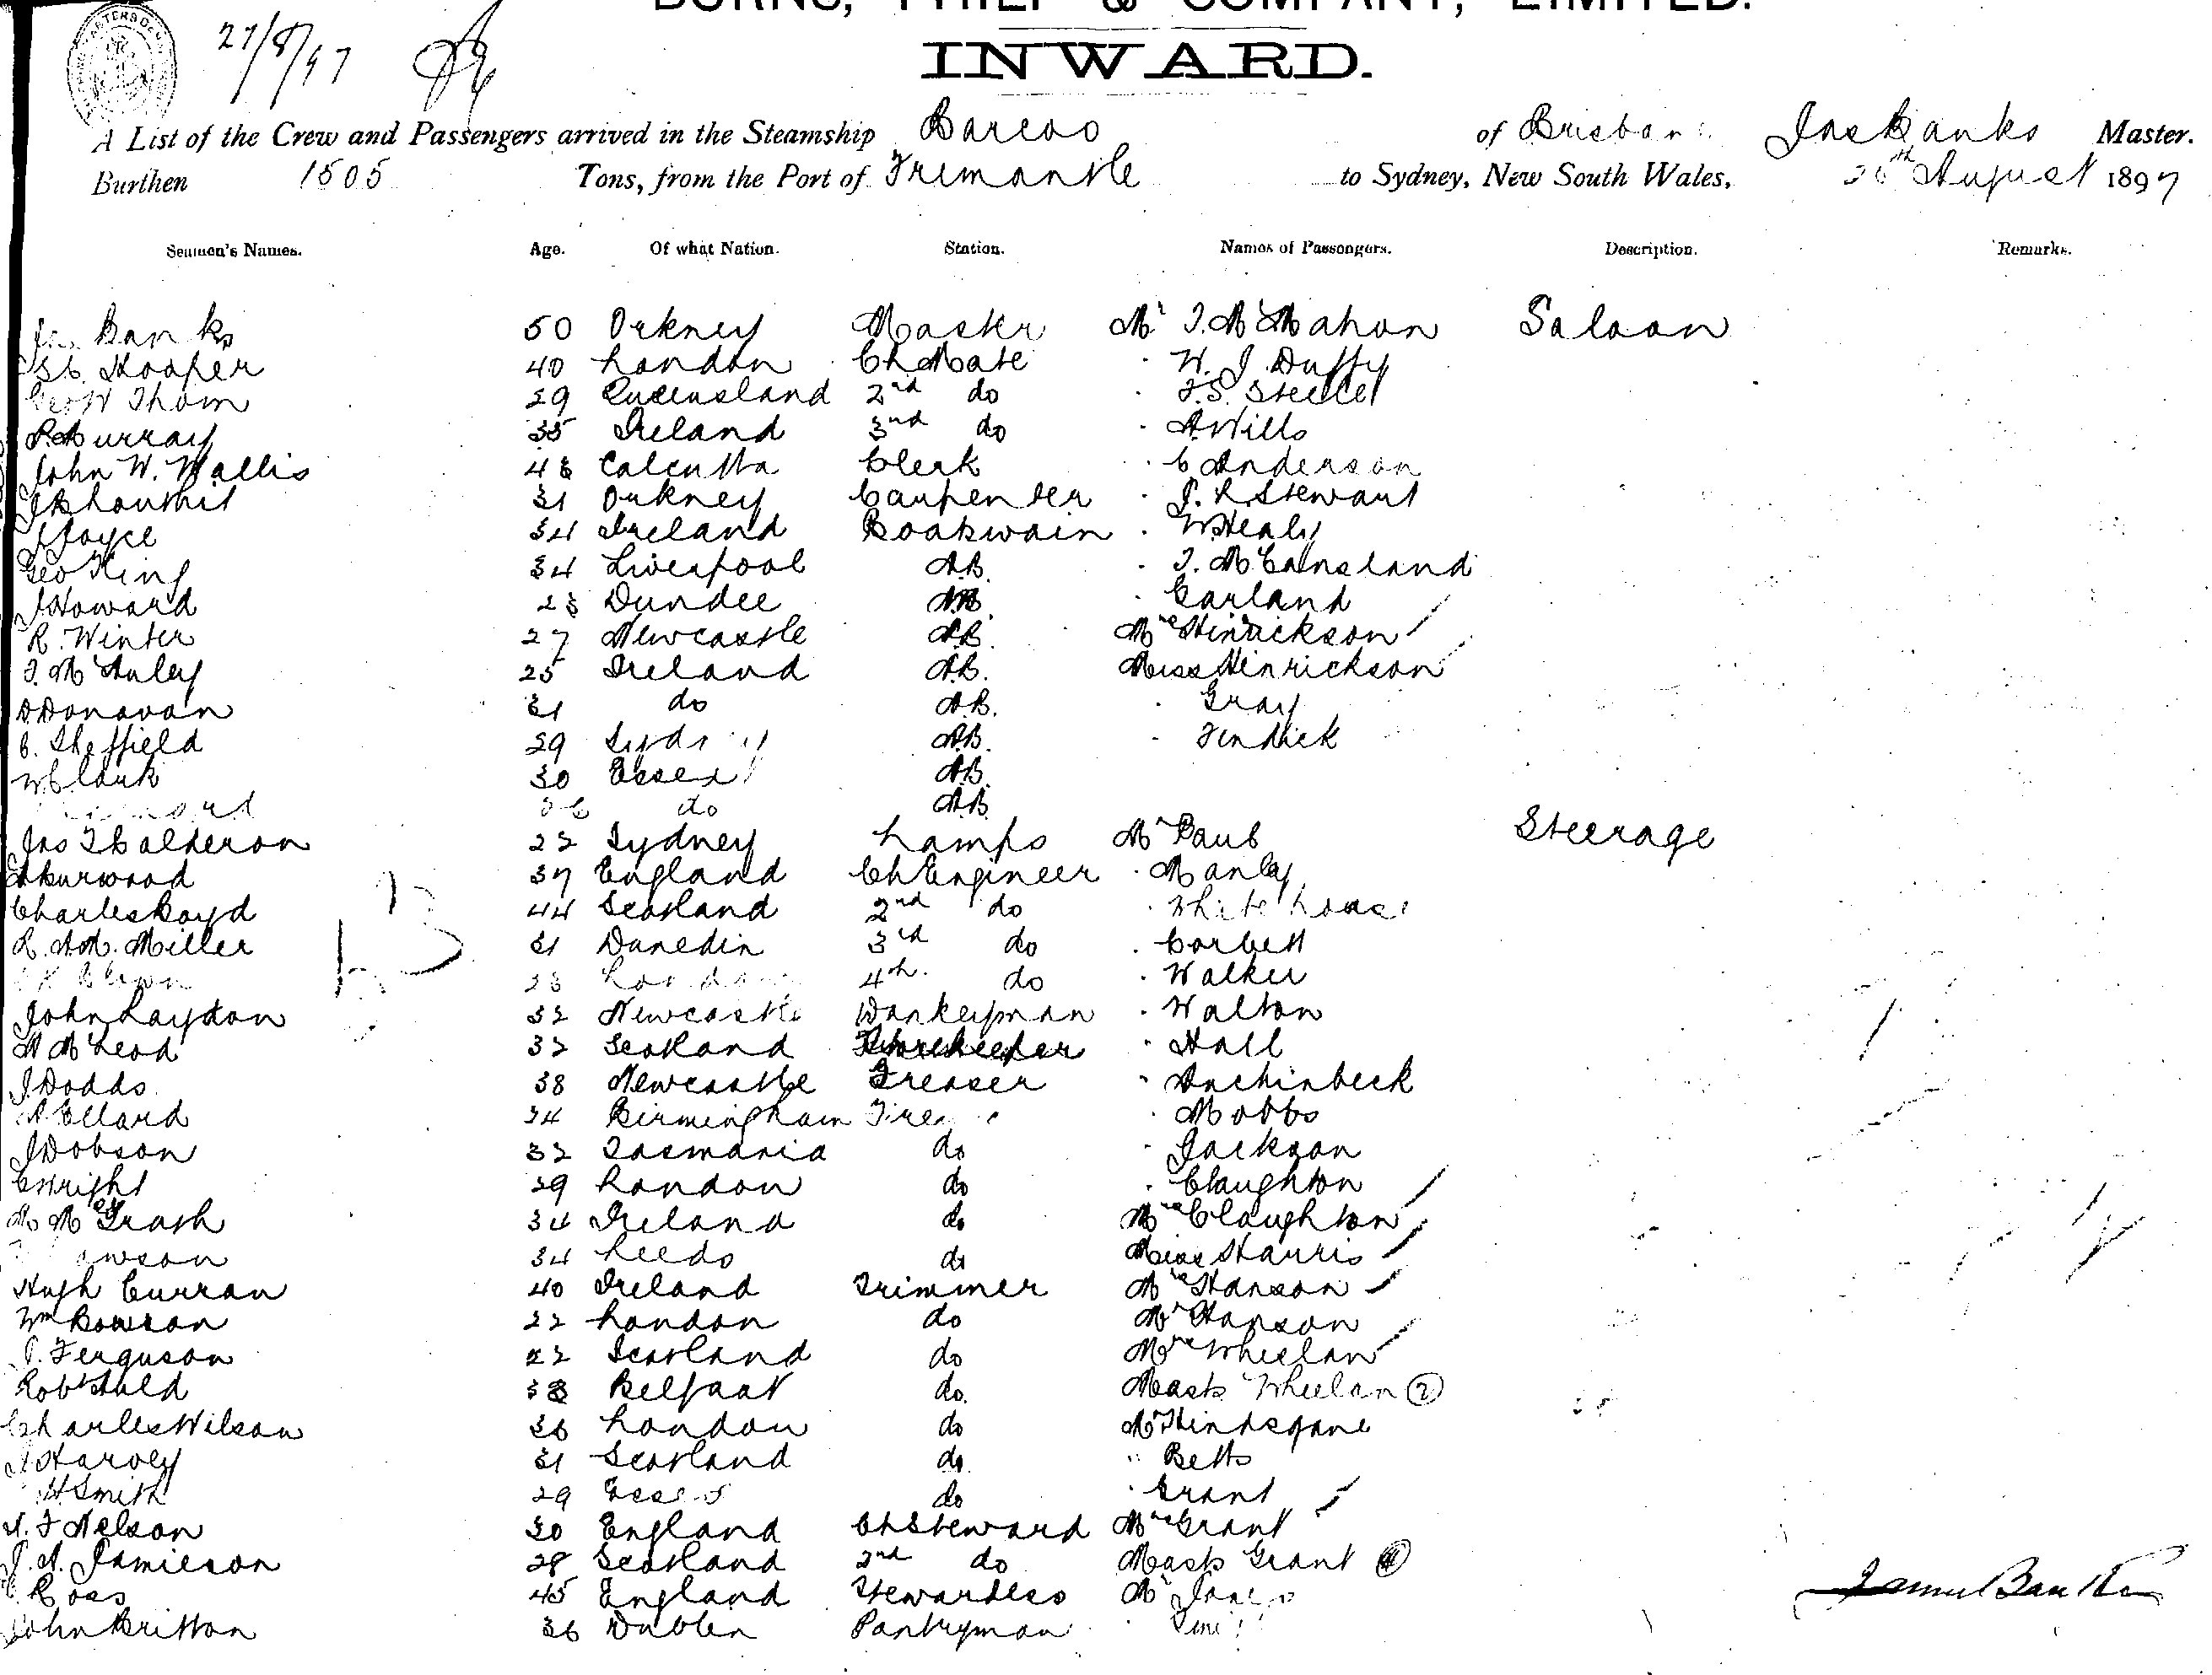 BURNS, PHILP & COMPANY, LIMITED.
27/8/97
INWARD.
A List of the Crew and Passengers arrived in the Steamship Barcoo of Brisbane Jas Banks Master.
Burthen 1505 Tons, from the Port of Fremantle to Sydney, New South Wales, 26th August 1897
Seamen's Names. Age. Of what Nation. Station. Names of Passengers. Description. Remarks.
Banks 50 Orkney Master Mr J. McMahon Saloon
Hooper 40 London Ch Mate " W. J. Duffy
Geo W Thom 29 Queensland 2nd do
P. Murray 35 Ireland 3nd do " A Wills
John W. Wallis Calcutta Clerk " C Anderson
31 Orkney Carpenter " J. R Stewart
J Joyce 34 Ireland Boatswain " W Healy
Geo King 34 Liverpool A.B.
J Howard Dundee A.B. " Garland
R. Winter 27 Newcastle A.B. Mrs Hinrickson
25 Ireland A.B. Miss Hinrickson
D Donovan 31 do A.B. " Gray
C. Sheffield 29 Sydney A.B.
W Clark 30 Essex A.B.
do A.B.
Jas T Calderon 22 Sydney Lamps Mr Paul Steerage
37 England Ch Engineer " Manly
Charles Boyd 44 Scotland 2nd do " Whitehouse
Miller 31 Dunedin 3rd do " Corbett
London 4th do " Walker
John Laydon 32 Newcastle Donkeyman " Walton
McLeod 32 Scotland Storekeeper " Hall
J Dodds 38 Newcastle Greaser " Auchinbeck
Ellard 24 Birmingham " Mobbs
J Dobson 32 Tasmania do " Jackson
C Wright 29 London do " Claughton
34 Ireland do Mrs Claughton
34 Leeds do Miss Harris
Hugh Curran 40 Ireland Trimmer Mrs Hanson
Wm Bowson 22 London do Mr Hanson
P. Ferguson 22 Scotland do Mrs Wheelan
Robt Auld 38 Belfast do Mast Wheelan (2)
Charles Wilson 36 London do
J Harvey 31 Scotland do " Betts
H Smith 29 Essex do " Grant
N. F Nelson 30 England Ch Steward Mrs Grant
J. A. Jamieson 28 Scotland 2nd do Mast Grant
Ross 45 England Stewardess Mr Jones
John Britton 36 Dublin Pantryman
James Banks